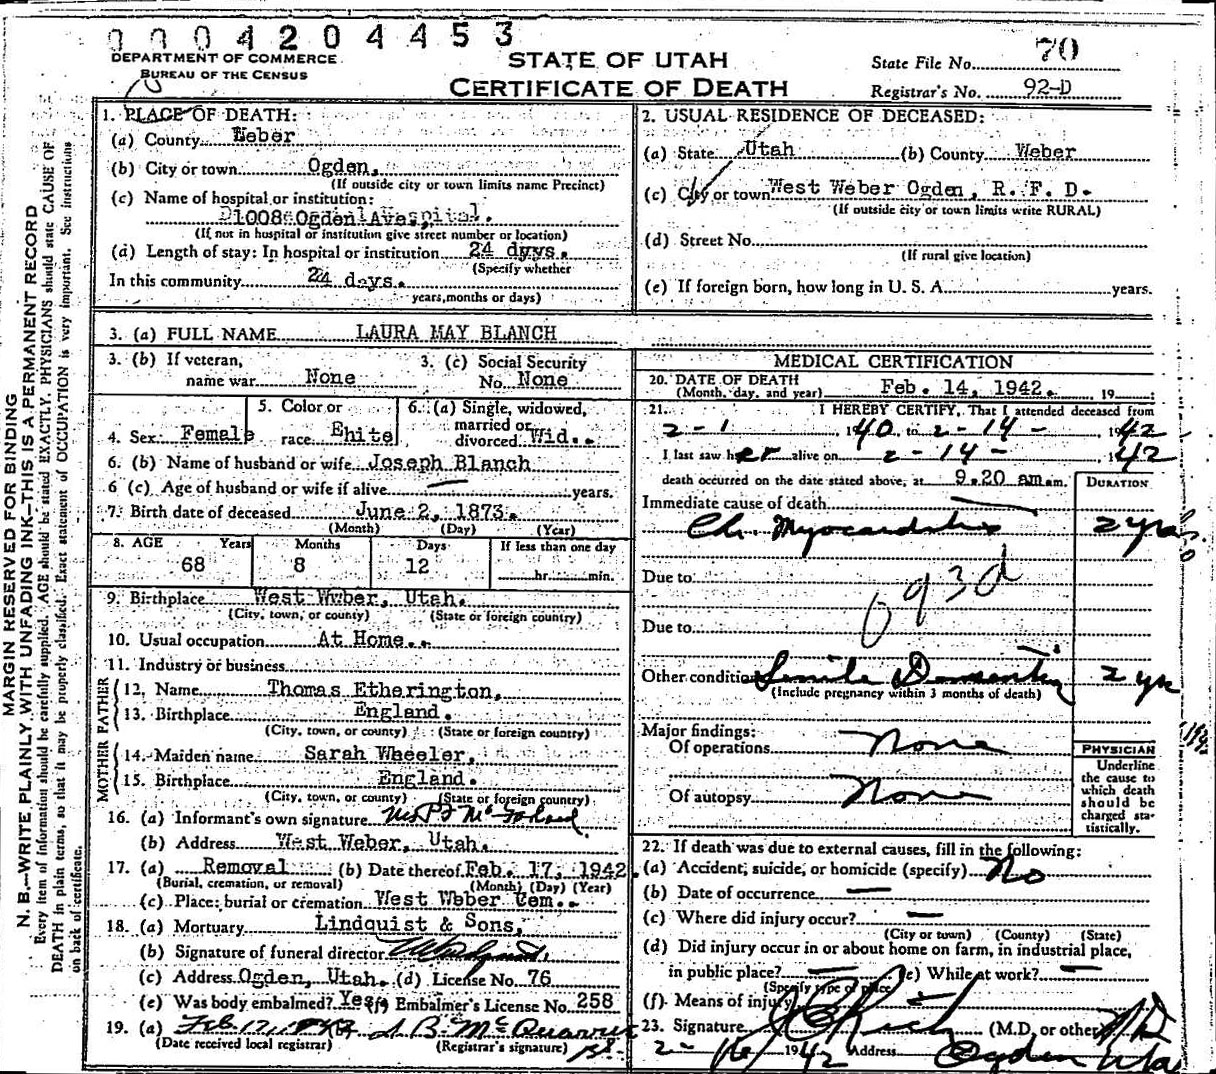 0004204453
DEPARTMENT OF COMMERCE
BUREAU OF THE CENSUS
STATE OF UTAH
CERTIFICATE OF DEATH
State File No. 70
Registrar's No. 92-D
MARGIN RESERVED FOR BINDING
N. B.—WRITE PLAINLY, WITH UNFADING INK—THIS IS A PERMANENT RECORD
Every item of information should be carefully supplied. AGE should be stated EXACTLY. PHYSICIANS should state CAUSE OF
DEATH in plain terms, so that it may be properly classified. Exact statement of OCCUPATION is very important. See instructions
on back of certificate.
1. PLACE OF DEATH:
(a) County Weber
(b) City or town Ogden,
(If outside city or town limits name Precinct)
(c) Name of hospital or institution:
1008 Ogden Ave.
(If not in hospital or institution give street number or location)
(d) Length of stay: In hospital or institution 24 dyys.
(Specify whether
In this community 24 days.
years, months or days)
2. USUAL RESIDENCE OF DECEASED:
(a) State Utah (b) County Weber
(c) City or town West Weber Ogden, R. F. D.
(If outside city or town limits write RURAL)
(d) Street No.
(If rural give location)
(e) If foreign born, how long in U. S. A. years.
3. (a) FULL NAME LAURA MAY BLANCH
3. (b) If veteran,
name war None
3. (c) Social Security
No. None
4. Sex Female
5. Color or
race Ehite
6. (a) Single, widowed,
married or
divorced Wid.
6. (b) Name of husband or wife Joseph Blanch
6 (c) Age of husband or wife if alive — years.
7. Birth date of deceased June 2, 1873.
(Month) (Day) (Year)
8. AGE Years Months Days If less than one day
68 8 12 hr. min.
9. Birthplace West Wwber, Utah.
(City, town, or county) (State or foreign country)
10. Usual occupation At Home.
11. Industry or business
FATHER
12. Name Thomas Etherington,
13. Birthplace England.
(City, town, or county) (State or foreign country)
MOTHER
14. Maiden name Sarah Wheeler,
15. Birthplace England.
(City, town, or county) (State or foreign country)
16. (a) Informant's own signature
(b) Address West Weber, Utah.
17. (a) Removal (b) Date thereof Feb. 17, 1942.
(Burial, cremation, or removal) (Month) (Day) (Year)
(c) Place: burial or cremation West Weber Cem.
18. (a) Mortuary Lindquist & Sons,
(b) Signature of funeral director
(c) Address Ogden, Utah. (d) License No. 76
(e) Was body embalmed? Yes (f) Embalmer's License No. 258
19. (a) Feb. 17, 1942
(Date received local registrar) (Registrar's signature)
MEDICAL CERTIFICATION
20. DATE OF DEATH
(Month, day, and year) Feb. 14, 1942. 19
21. I HEREBY CERTIFY, That I attended deceased from
2-1 1940 to 2-14- 1942
I last saw her alive on 2-14- 1942
death occurred on the date stated above, at 9.20 am m.
DURATION
Immediate cause of death
Ch. Myocarditis 2 yrs
Due to
093d
Due to
Other condition Senile Dementia 2 yrs
(Include pregnancy within 3 months of death)
Major findings:
Of operations None
Of autopsy None
PHYSICIAN
Underline
the cause to
which death
should be
charged sta-
tistically.
22. If death was due to external causes, fill in the following:
(a) Accident, suicide, or homicide (specify) No
(b) Date of occurrence —
(c) Where did injury occur? —
(City or town) (County) (State)
(d) Did injury occur in or about home on farm, in industrial place,
in public place? — (e) While at work? —
(Specify type of place
(f) Means of injury —
23. Signature (M.D. or other) MD
2-16 1942 Address Ogden Utah